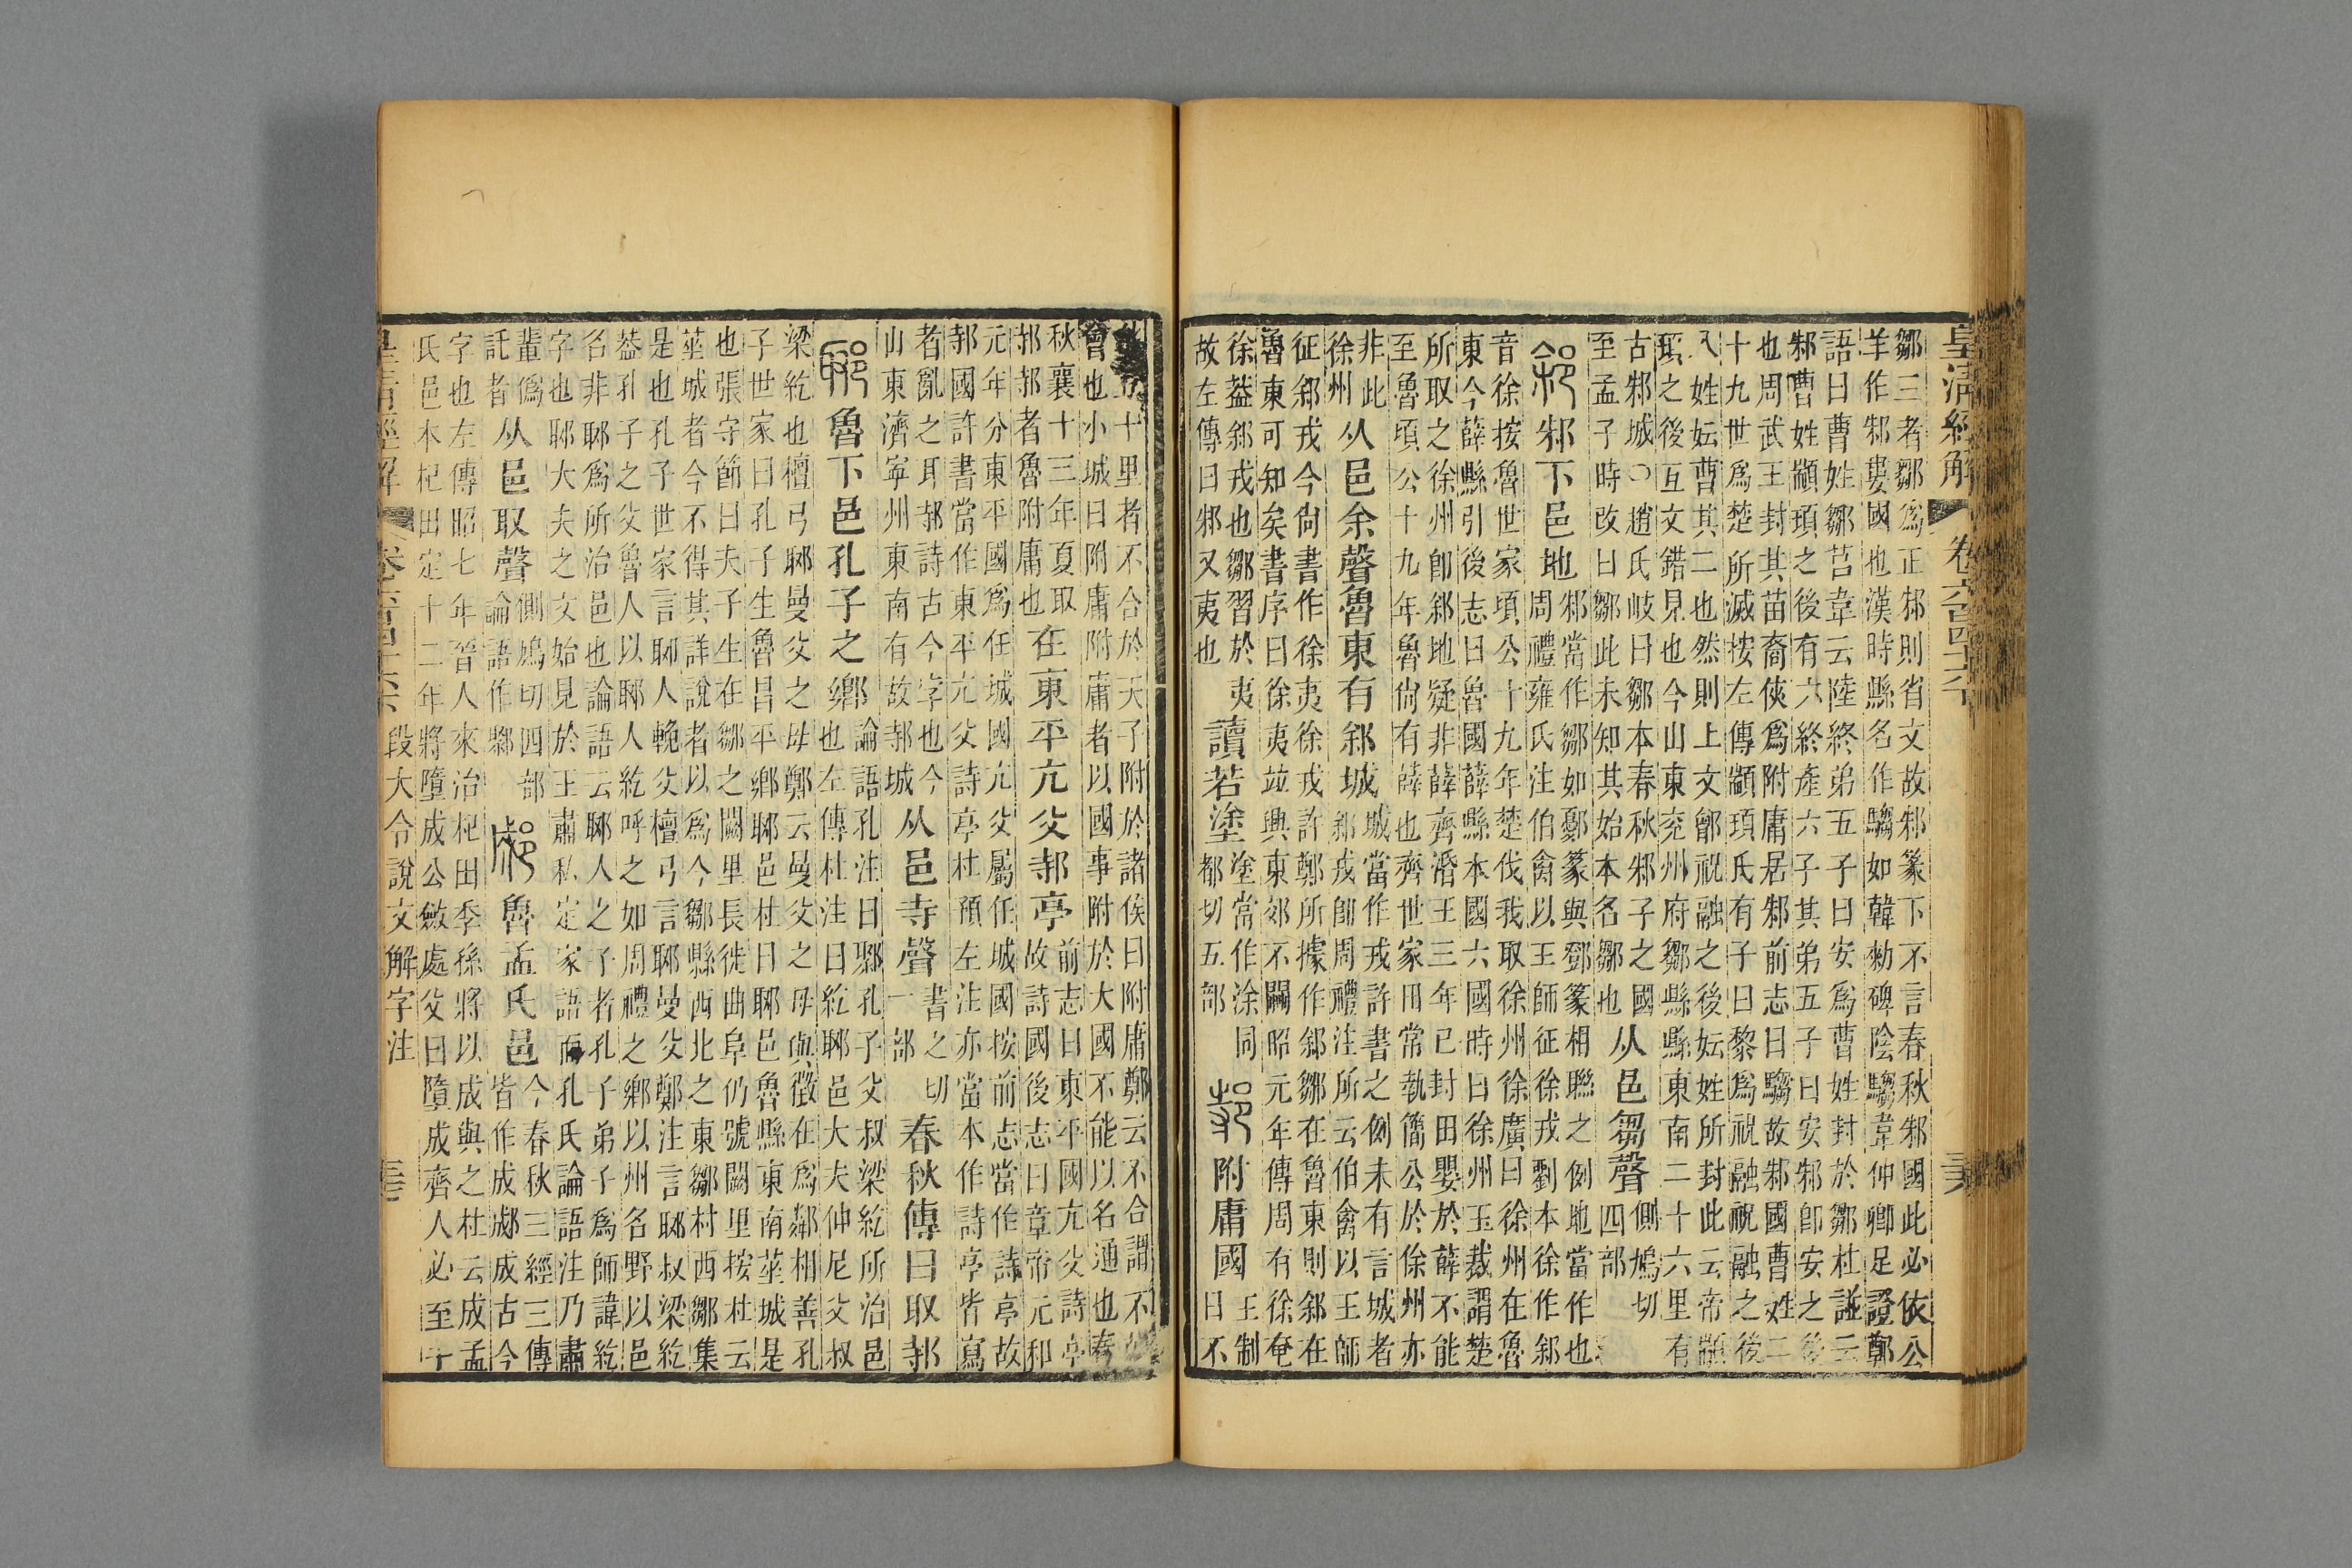 皇清經解 卷六百四十六 三六
鄒三者鄒爲正邾則省文故邾篆下不言春秋邾國此必依公
羊作邾婁國也漢時縣名作騶如韓勑碑陰騶韋仲卿足證鄭
語曰曹姓鄒莒韋云陸終弟五子曰安爲曹姓封於鄒杜譜云
邾曹姓顓頊之後有六終產六子其弟五子曰安邾卽安之後
也周武王封其苗裔俠爲附庸居邾前志曰騶故邾國曹姓二
十九世爲楚所滅按左傳顓頊氏有子曰黎爲祝融祝融之後
八姓妘曹其二也然則上文鄶祝融之後妘姓所封此云帝顓
頊之後互文錯見也今山東兖州府鄒縣縣東南二十六里有
古邾城○趙氏岐曰鄒本春秋邾子之國
至孟子時改曰鄒此未知其始本名鄒也
从邑芻聲
側鳩切
四部
䣄
邾下邑地
邾當作鄒如鄾篆與鄧篆相聯之例地當作也
周禮雍氏注伯禽以王師征徐戎劉本徐作䣄
音徐按魯世家頃公十九年楚伐我取徐州徐廣曰徐州在魯
東今薛縣引後志曰魯國薛縣本國六國時曰徐州玉裁謂楚
所取之徐州卽䣄地疑非薛齊湣王三年已封田嬰於薛不能
至魯頃公十九年魯尙有薛也齊世家田常執簡公於俆州亦
非此
徐州
从邑余聲魯東有䣄城
城當作戎許書之例未有言城者
䣄戎卽周禮注所云伯禽以王師
征䣄戎今尙書作徐夷徐戎許鄭所據作䣄鄒在魯東則䣄在
魯東可知矣書序曰徐夷竝興東郊不闢昭元年傳周有徐奄
徐蓋䣄戎也鄒習於夷
故左傳曰邾又夷也
讀若塗
塗當作涂同
都切五部
邿
附庸國
王制
曰不
十里者不合於天子附於諸侯曰附庸鄭云不合謂不
會也小城曰附庸附庸者以國事附於大國不能以名通也春
秋襄十三年夏取
邿邿者魯附庸也
在東平亢父邿亭
前志曰東平國亢父詩亭
故詩國後志曰章帝元和
元年分東平國爲任城國亢父屬任城國按前志當作詩亭故
邿國許書當作東平亢父詩亭杜預左注亦當本作詩亭皆寫
者亂之耳邿詩古今字也今
山東濟寧州東南有故邿城
从邑寺聲
書之切
一部
春秋傳曰取邿
郰
魯下邑孔子之鄉
論語孔注曰郰孔子父叔梁紇所治邑
也左傳杜注曰紇郰邑大夫仲尼父叔
梁紇也檀弓郰曼父之母鄭云曼父之母與徵在爲鄰相善孔
子世家曰孔子生魯昌平鄉郰邑杜曰郰邑魯縣東南莝城是
也張守節曰夫子生在鄒之闕里長徙曲阜仍號闕里按杜云
莝城者今不得其詳說者以爲今鄒縣西北之東鄒村西鄒集
是也孔子世家言郰人輓父檀弓言郰曼父鄭注言郰叔梁紇
蓋孔子之父魯人以郰人紇呼之如周禮之鄉以州名野以邑
名非郰爲所治邑也論語云郰人之子者孔子弟子爲師諱紇
字也郰大夫之文始見於王肅私定家語而孔氏論語注乃肅
輩僞
託者
从邑取聲
側鳩切四部
論語作鄹
郕
魯孟氏邑
今春秋三經三傳
皆作成郕成古今
字也左傳昭七年晉人來治杞田季孫將以成與之杜云成孟
氏邑本杞田定十二年將墮成公斂處父曰墮成齊人必至于
皇清經解 卷六百四十六 段大令說文解字注 三七